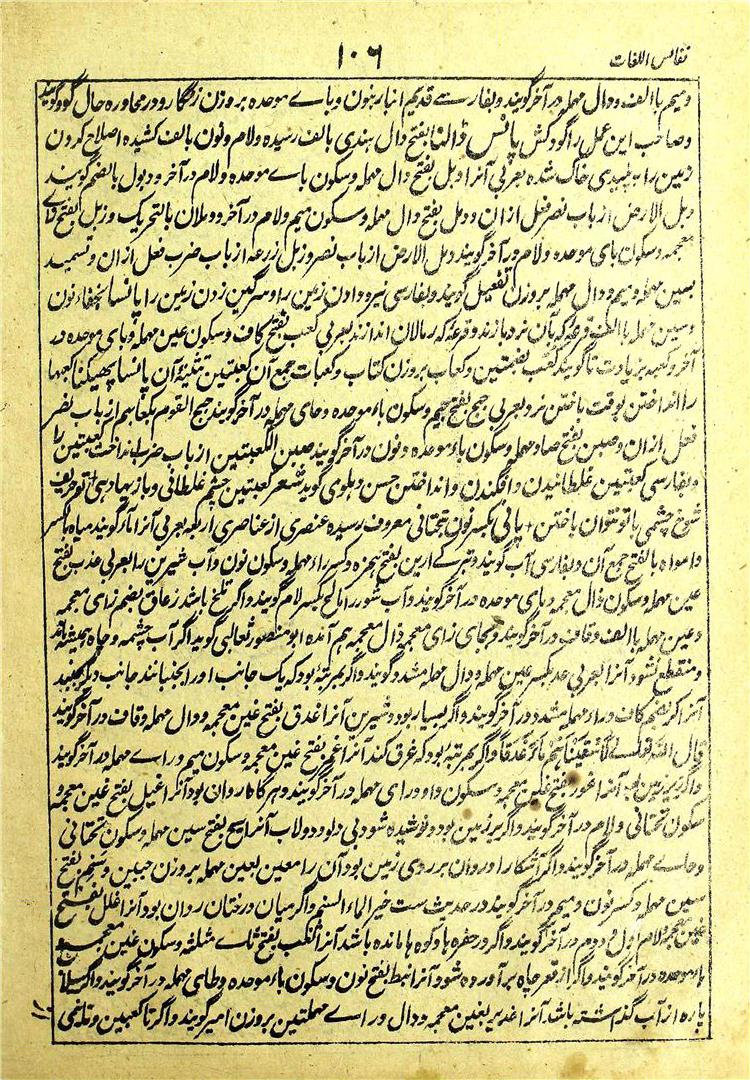 نفائس اللغات
۱۰۶
ومیم باالف ودال مهمله در آخر گویند وبفارسے قدیم انبار بنون وباے موحده بروزن زنگار ودر محاوره حال کود گویند
وصاحب این عمل را کودکش پانس ڈالنا بفتح دال هندی بالف رسیده ولام ونون بالف کشیده اصلاح کردن
زمین را به پلیدی خاک شده بعربی آنرا دبل بفتح دال مهمله وسکون باے موحده ولام در آخر ودبول بالضم گویند
دبل الارض از باب نصر فعل از ان ودمل بفتح دال مهمله وسکون میم ولام در آخر ودملان بالتحریک وزبل بفتح زای
معجمه وسکون بای موحده ولام در آخر گویند دمل الارض از باب نصر وزبل زرعه از باب ضرب فعل از ان وتسمید
بسین مهمله ومیم ودال مهمله بروزن تفعیل گویند وبفارسی نیرو دادن زمین را وسرگین زدن زمین را پانسا بخفاء نون
وسین مهمله باالف قرعه که بآن نرد بازند وقرعه که رمالان اندازند بعربی کعب بفتح کاف وسکون عین مهمله وبای موحده در
آخر وکعبه بزیادت تا گویند کعب بضمتین وکعاب بروزن کتاب وکعبات جمع آن کعبتین تثنیۂ آن پانسا پھینکنا کعبها
را انداختن بوقت باختن نرد بعربی جبح بفتح جیم وسکون باء موحده وحای مهمله در آخر گویند جبح القوم بکعابهم از باب نصر
فعل از ان وصبن بفتح صاد مهمله وسکون باء موحده ونون در آخر گویند صبن الکعبتین از باب ضرب انداخت کعبتین را
وبفارسی کعبتین غلطانیدن وافگندن وانداختن حسن دهلوی گوید شعر کعبتین چشم غلطانی وبازیها دهی + تو حریف
شوخ چشمی با تو نتوان باختن + پانی بکسر نون بتحتانی معروف رسیده عنصری از عناصر اربعه بعربی آنرا ماء گویند میاه بالکسر
وامواه بالفتح جمع آن وبفارسی آب گویند وبترکے ارین بفتح همزه وکسر راء مهمله وسکون نون وآب شیرین را بعربی عذب بفتح
عین مهمله وسکون ذال معجمه وبای موحده در آخر گویند وآب شور را مالح بکسر لام گویند واگر تلخ باشد زعاق بضم زای معجمه
وعین مهمله باالف وقاف در آخر گویند وبجای زای معجمه ذال معجمه هم آمده ابو منصور ثعالبی گوید اگر آب چشمه وچاه همیشه ماند
ومنقطع نشود آنرا بعربی عد بکسر عین مهمله ودال مهمله مشدد گویند واگر بمرتبۂ بود که یک جانب او را بجنبانند جانب دیگر نجنبد
آنرا کر بضم کاف وراء مهمله مشدد در آخر گویند واگر بسیار بود وشیرین آنرا غدق بفتح غین معجمه ودال مهمله وقاف در آخر گویند
قال الله تعالے لاسقیناهم ماء غدقا واگر بمرتبۂ بود که غرق کند آنرا غمر بفتح غین معجمه وسکون میم وراے مهمله در آخر گویند
واگر زیر زمین بود آنرا غور بفتح غین معجمه وسکون واو ورای مهمله در آخر گویند وهرگاه روان بود آنرا غیل بفتح غین معجمه و
سکون تحتانی ولام در آخر گویند واگر بر زمین بود ونوشیده شود بی دلو ودولاب آنرا سیح بفتح سین مهمله وسکون تحتانی
وحاے مهمله در آخر گویند واگر آشکارا وروان بر روی زمین بود آن را معین بعین مهمله بروزن جبین وسنم بفتح
سین مهمله وکسر نون ومیم در آخر گویند در حدیث ست خیر الماء السنم واگر میان درختان روان بود آنرا غلل بفتح
غین معجمه ولام اول ودوم در آخر گویند واگر در حفره ها وکوه ها مانده باشد آنرا ثغب بفتح ثاے مثلثه وسکون غین معجمه
باء موحده در آخر گویند واگر از قعر چاه برآورده شود آنرا نبط بفتح نون وسکون باء موحده وطای مهمله در آخر گویند واگر سیلاب
پاره از آب گذاشته باشد آنرا غدیر بغین معجمه ودال وراے مهملتین بروزن امیر گویند واگر تا کعبین وتا نیمی